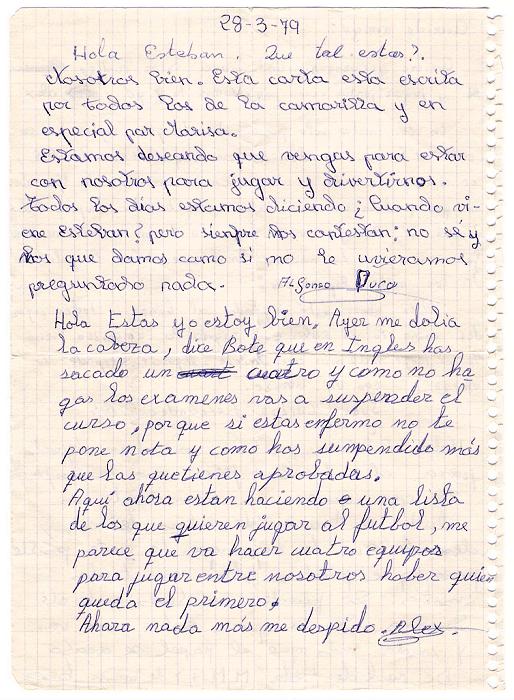 28-3-79
Hola Esteban. Que tal estas?.
Nosotros bien. Esta carta esta escrita
por todos los de la camarilla y en
especial por Marisa.
Estamos deseando que vengas para estar
con nosotros para jugar y divertirnos.
todos los días estamos diciendo ¿Cuando vi-
ene Esteban? pero siempre nos contestan: no sé y
nos que damos como si no le uvieramos
preguntado nada. Alfonso Duco
Hola Estas yo estoy bien. Ayer me dolia
la cabeza, dice Bote que en Ingles has
sacado un cuatro y como no ha
gas los examenes vas a suspender el
curso, porque si estas enfermo no te
pone nota y como has sumpendido más
que las que tienes aprobadas.
Aquí ahora estan haciendo una lista
de los que quieren jugar al futbol, me
parece que va hacer cuatro equipos
para jugar entre nosotros haber quien
queda el primero.
Ahara nada más me despido. Alex.